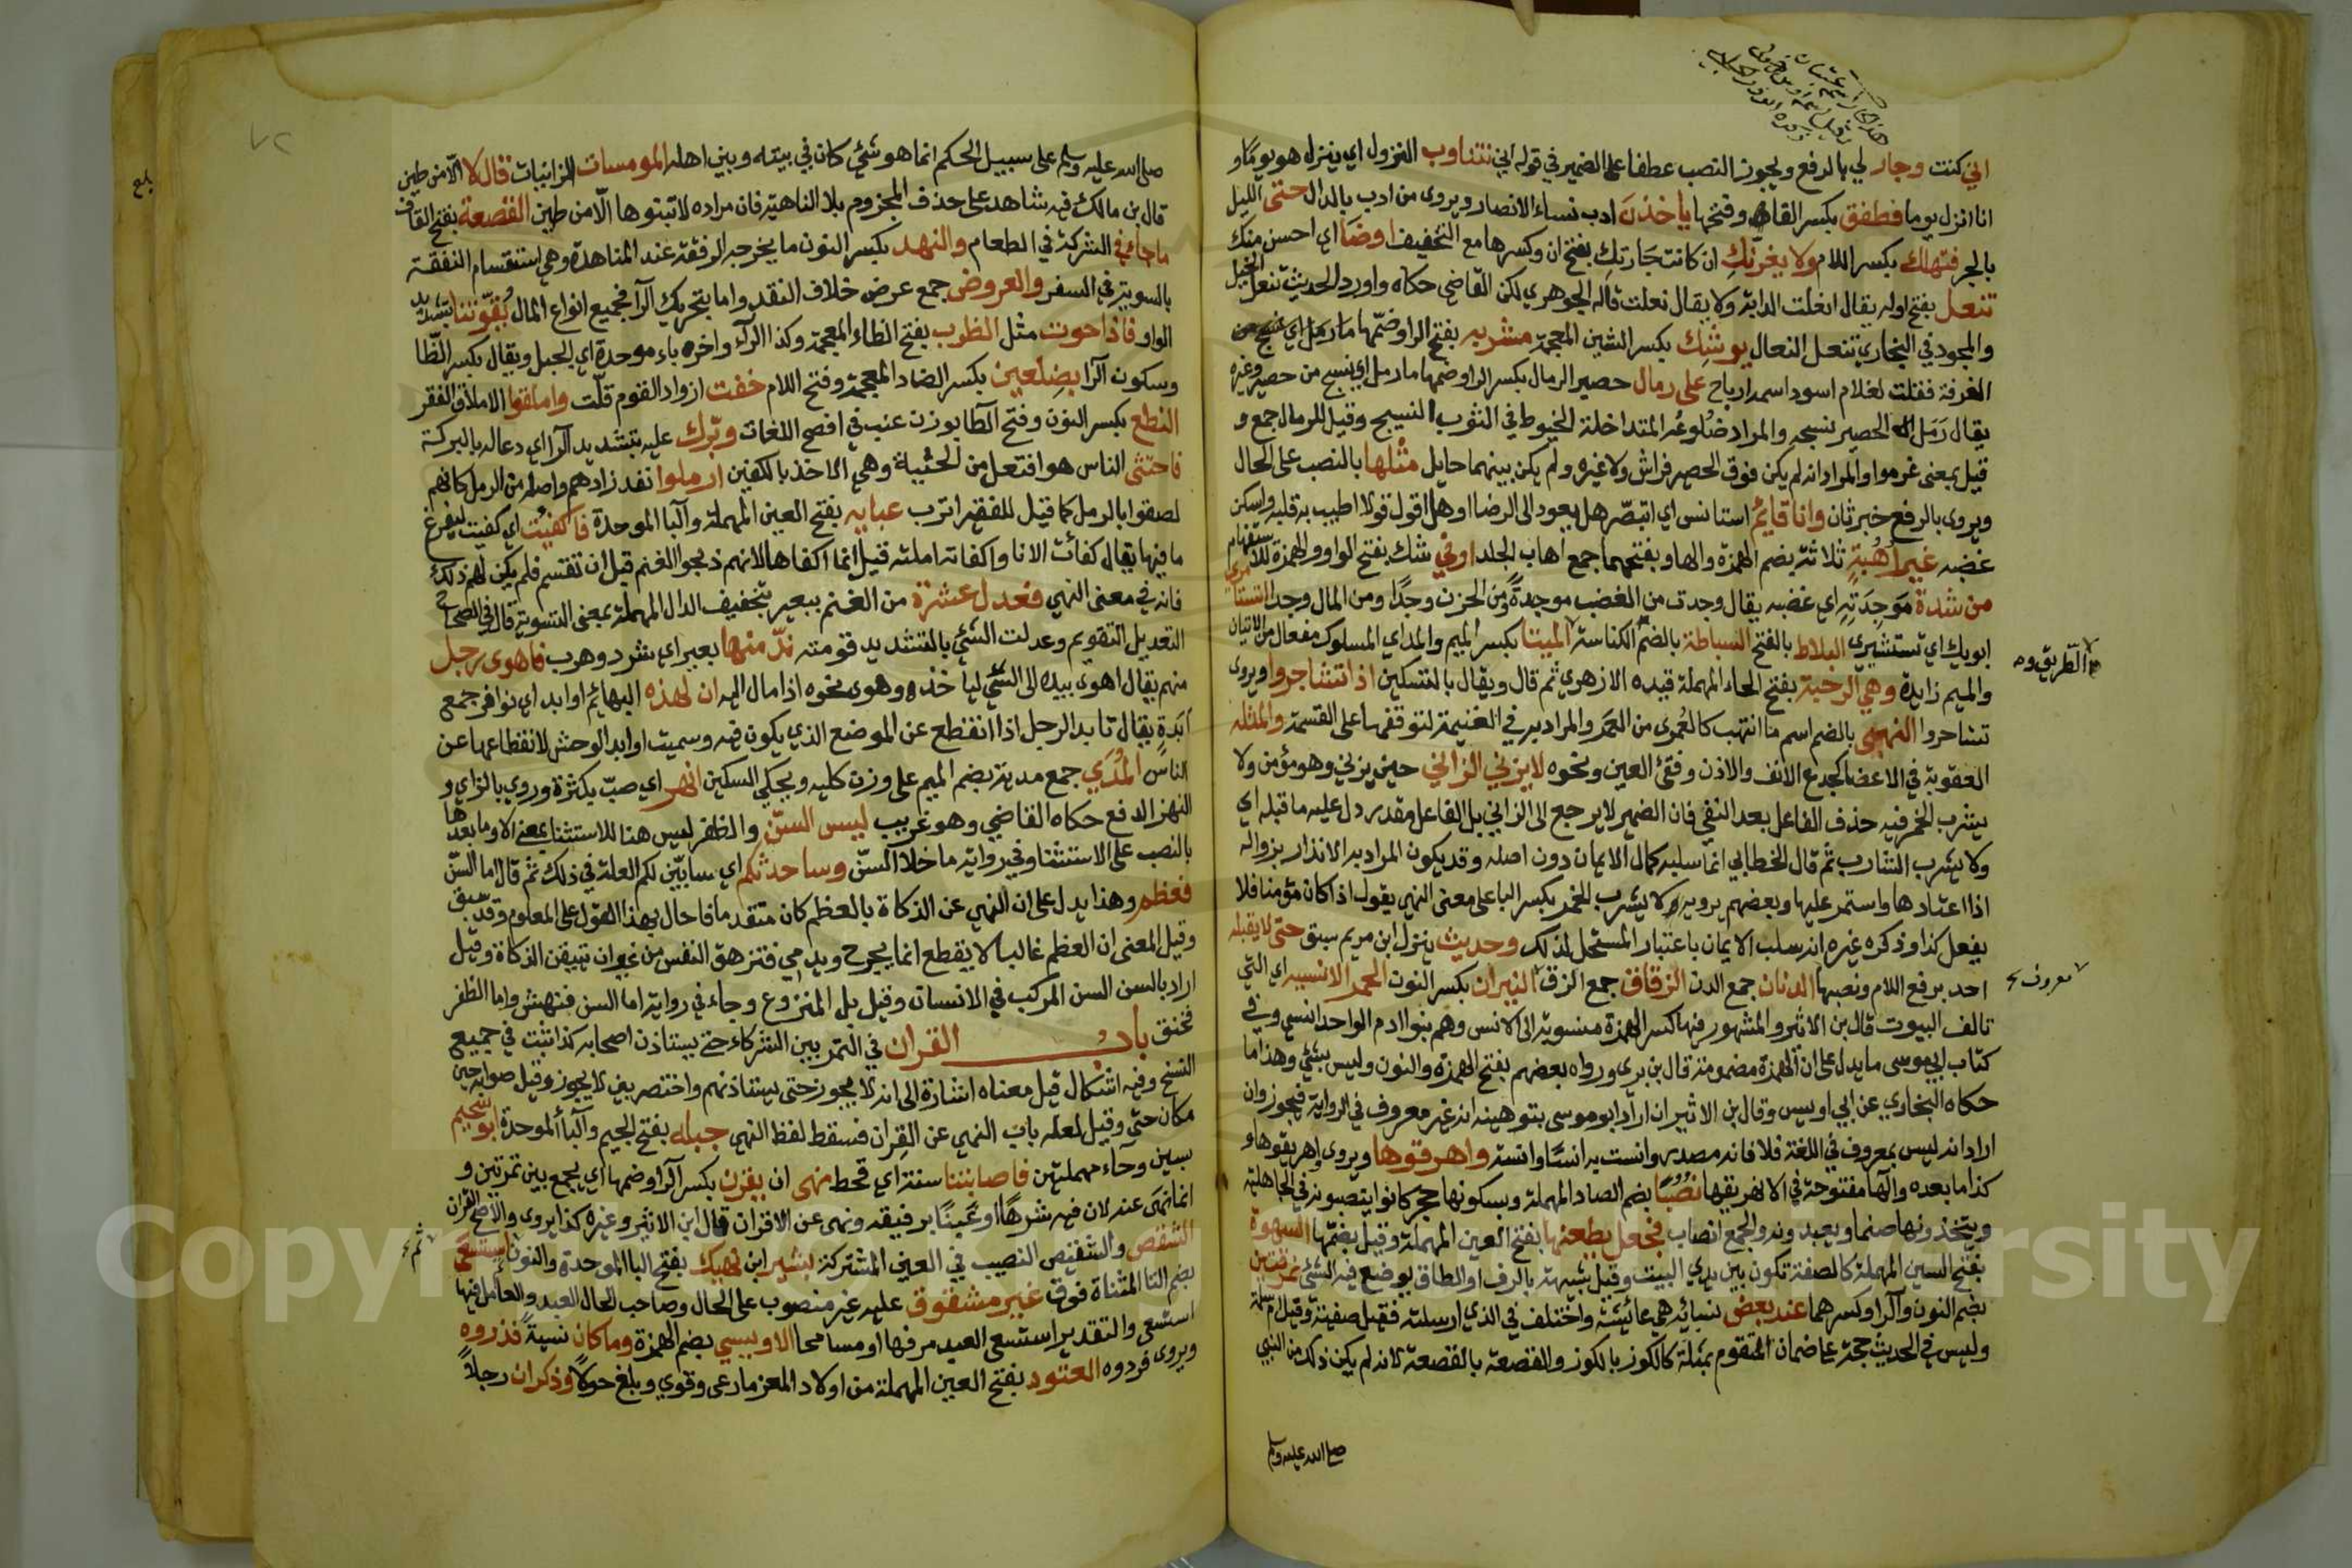 اني كنت وجار لي بالرفع ويجوز النصب عطفا على الضمير في قوله اني نتناوب النزول اي ينزل هو يوما و
انا انزل يوما فطفق بكسر القاف وفتحها ياخذن ادب نساء الانصار ويروى من ادب بالدال حتى الليل
بالجر فتهلك بكسر اللام ولا يغرنك ان كانت جارتك بفتح ان وكسرها مع التخفيف اوضا اي احسن منك
تنعل بفتح اوله يقال انعلت الدابة ولا يقال نعلت قاله الجوهري لكن القاضي حكاه واورد الحديث تنعل الخيل
والمجود في البخاري تنعل النعال يوشك بكسر الشين المعجمة مشربه بفتح الراء وضمها
الغرفة فقلت لغلام اسود اسمه رباح على رمال حصير الرمال بكسر الراء وضمها ما رمل اي نسج من حصير وغيره
يقال رمل الحصير نسجه والمراد ضلوعه المتداخلة الخيوط في الثوب النسيج وقيل للرمال جمع و
قيل بمعنى مرموا والمراد انه لم يكن فوق الحصير فراش ولا غيره ولم يكن بينهما حايل مثلها بالنصب على الحال
ويروى بالرفع خبر ثان وانا قايم استانس اي اتبصر هل يعود الى الرضا او هل اقول قولا اطيب به قلبه واسكن
غضبه غير اهبة ثلاثة بضم الهمزة والها وبفتحهما جمع اهاب الجلد اوفي شك بفتح الواو والهمزة للاستفهام
من شدة موجدته اي غضبه يقال وجدت من الغضب موجدة ومن الحزن وجدا ومن المال وجدا
ابويك اي تستشيري البلاط بالفتح السباطة بالضم الكناسة الميتا بكسر الميم والمد اي المسلوك مفعال من الاتيان
والميم زايدة وهي الرحبة بفتح الحاء المهملة قيده الازهري ثم قال ويقال بالتسكين اذا تشاجروا ويروى
تشاحروا النهبى بالضم اسم ما انتهب كالعمرى من العمر والمراد به في الغنيمة لتوقفها على القسمة والمثلة
العقوبة في الاعضا كجدع الانف والاذن وفقئ العين ونحوه لا يزني الزاني حين يزني وهو مؤمن ولا
يشرب الخمر فيه حذف الفاعل بعد النفي فان الضمير لا يرجع الى الزاني بل الفاعل مقدر دل عليه ما قبله اي
ولا يشرب الشارب ثم قال الخطابي انما سلبه كمال الايمان دون اصله وقد يكون المراد به الانذار بزواله
اذا اعتادها واستمر عليها وبعضهم يرويه ولا يشرب الخمر بكسر البا على معنى النهي يقول اذا كان مؤمنا فلا
يفعل كذا وذكره غيره انه سلب الايمان باعتبار المستحل لذلك وحديث ينزل ابن مريم سبق حتى لا يقبله
احد برفع اللام ونصبها الدنان جمع الدن الزقاق جمع الزق النيران بكسر النون الحمر الانسيه اي التي
تالف البيوت قال بن الاثير والمشهور فيها كسر الهمزة منسوبة الى الانس وهم بنو ادم الواحد انسي وفي
كتاب ابي موسى ما يدل على ان الهمزة مضمومة قال بن بري ورواه بعضهم بفتح الهمزة والنون وليس بشئ وهذا ما
حكاه البخاري عن ابي اويس وقال بن الاثير ان اراد ابو موسى بتوهينه انه غير معروف في الرواية فيجوز وان
اراد انه ليس بمعروف في اللغة فلا فانه مصدر وانست به انسا وانسة واهرقوها ويروى اهريقوها و
كذا ما بعده والها مفتوحة في الا نهريقها نصبا بضم الصاد المهملة وبسكونها حجر كانوا ينصبونه في الجاهلية
ويتخذونها صنما ويعبدونه والجمع انصاب فجعل يطعنها بفتح العين المهملة وقيل بضمها السهوة
بفتح السين المهملة كالصفة تكون بين يدي البيت وقيل شبيهة بالرف او الطاق يوضع فيه الشئ نمرقتين
بضم النون والراء وكسرهما عند بعض نسائه هي عائشة واختلف في الذي ارسلته فقيل صفية وقيل ام سلمة
وليس في الحديث حجة على ضمان المتقوم بمثله كالكوز بالكوز والقصعة بالقصعة لانه لم يكن ذلك من النبي
صلى الله عليه وسلم
الطريق وم
معروف
صلى الله عليه وسلم على سبيل الحكم انما هو شئ كان في بيته وبين اهله المومسات الزانيات قال لا الا من طين
قال بن مالك فيه شاهد على حذف المجزوم بلا الناهية فان مراده لا تبنوها الا من طين القصعة بفتح القاف
ما جاء في الشركة في الطعام والنهد بكسر النون ما يخرجه الرفقة عند المناهدة وهي استقسام النفقة
بالسوية في السفر والعروض جمع عرض خلاف النقد واما بتحريك الرا فجميع انواع المال يقوتنا بتشديد
الواو فاذا حوت مثل الظرب بفتح الظاء المعجمة وكذا الراء واخره باء موحدة اي الجبل ويقال بكسر الظا
وسكون الرا بضلعين بكسر الضاد المعجمة وفتح اللام خفت ازواد القوم قلت واملقوا الاملاق الفقر
النطع بكسر النون وفتح الطا بوزن عنب في افصح اللغات وبرك عليه بتشديد الرا اي دعا له بالبركة
فاحتثى الناس هو افتعل من الحثية وهي الاخذ بالكفين ارملوا نفد زادهم واصله من الرمل كانهم
لصقوا بالرمل كما قيل للفقير اترب عبايه بفتح العين المهملة والبا الموحدة فاكفئت اي كفيت ليفرغ
ما فيها يقال كفأت الانا واكفاته املته قيل انما اكفاها لانهم ذبحوا الغنم قبل ان تقتسم فلم يكن لهم ذلك
فانه في معنى النهي فعدل عشرة من الغنم ببعير بتخفيف الدال المهملة بمعنى التسوية قال في الصحاح
التعديل التقويم وعدلت الشئ بالتشديد قومته ند منها بعير اي شرد وهرب فاهوى رجل
منهم يقال اهوى بيده الى الشئ لياخذه وهوى نحوه اذا مال اليه ان لهذه البهائم اوابد اي نوافر جمع
ابدة يقال تابد الرجل اذا انقطع عن الموضع الذي يكون فيه وسميت اوابد الوحش لانقطاعها عن
الناس المدي جمع مدية بضم الميم على وزن كلية ويحكي السكين انهر اي صب بكثرة وروي بالزاي و
النهز الدفع حكاه القاضي وهو غريب ليس السن والظفر ليس هنا للاستثنا بمعنى الا وما بعدها
بالنصب على الاستثنا وفي رواية ما خلا السن وساحدثكم اي سابين لكم العلة في ذلك ثم قال اما السن
فعظم وهذا يدل على ان النهي عن الذكاة بالعظم كان متقدما فاحال بهذا القول على المعلوم وقد سبق
وقيل المعنى ان العظم غالبا لا يقطع انما يجرح ويدمي فتزهق النفس من غير ان تيقن الذكاة وقيل
اراد بالسن السن المركب في الانسان وقيل بل المنزوع وجاء في رواية اما السن فنهش واما الظفر
فخنق باب القران في التمر بين الشركاء حتى يستاذن اصحابه كذا ثبت في جميع
النسخ وفيه اشكال قيل معناه اشارة الى انه لا يجوز حتى يستاذنهم واختصر يعني لا يجوز وقيل صوابه حين
مكان حتى وقيل لعله باب النهي عن القران فسقط لفظ النهي جبله بفتح الجيم والبا الموحدة ابو سحيم
بسين وحاء مهملتين فاصابتنا سنة اي قحط نهى ان يقرن بكسر الرا وضمها اي يجمع بين تمرتين و
انما نهى عنه لان فيه شرها او غبنا برفيقه ونهى عن الاقران قال ابن الاثير وغيره كذا يروى والاصح القران
الشقص والشقيص النصيب في العين المشتركة بشير ابن نهيك بفتح البا الموحدة والنون استسعي
بضم التا المثناة فوق غير مشقوق عليه غير منصوب على الحال وصاحب الحال العبد والعامل فيها
استسعى والتقدير استسعى العبد مرفها او مسامحا الاويسي بضم الهمزة وما كان نسية فذروه
ويروى فردوه العتود بفتح العين المهملة من اولاد المعز ما رعى وقوي وبلغ حولا وذكر ان رجلا
بلغ
Copyright © King Saud University